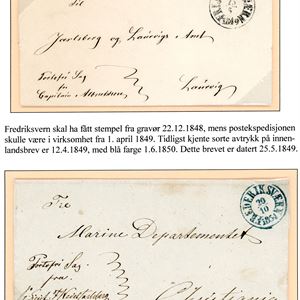 Til
Jarlsberg og Laurvigs Amt
Portofri Sag
fra
Laurvig
Fredriksvern skal ha fått stempel fra gravør 22.12.1848, mens postekspedisjonen
skulle være i virksomhet fra 1. april 1849. Tidligst kjente sorte avtrykk på innen-
landsbrev er 12.4.1849, med blå farge 1.6.1850. Dette brevet er datert 25.5.1849.
FREDERIKSVÆRN
20
10
Til
Marine Departementet
Portofri Sag
fra
Christiania